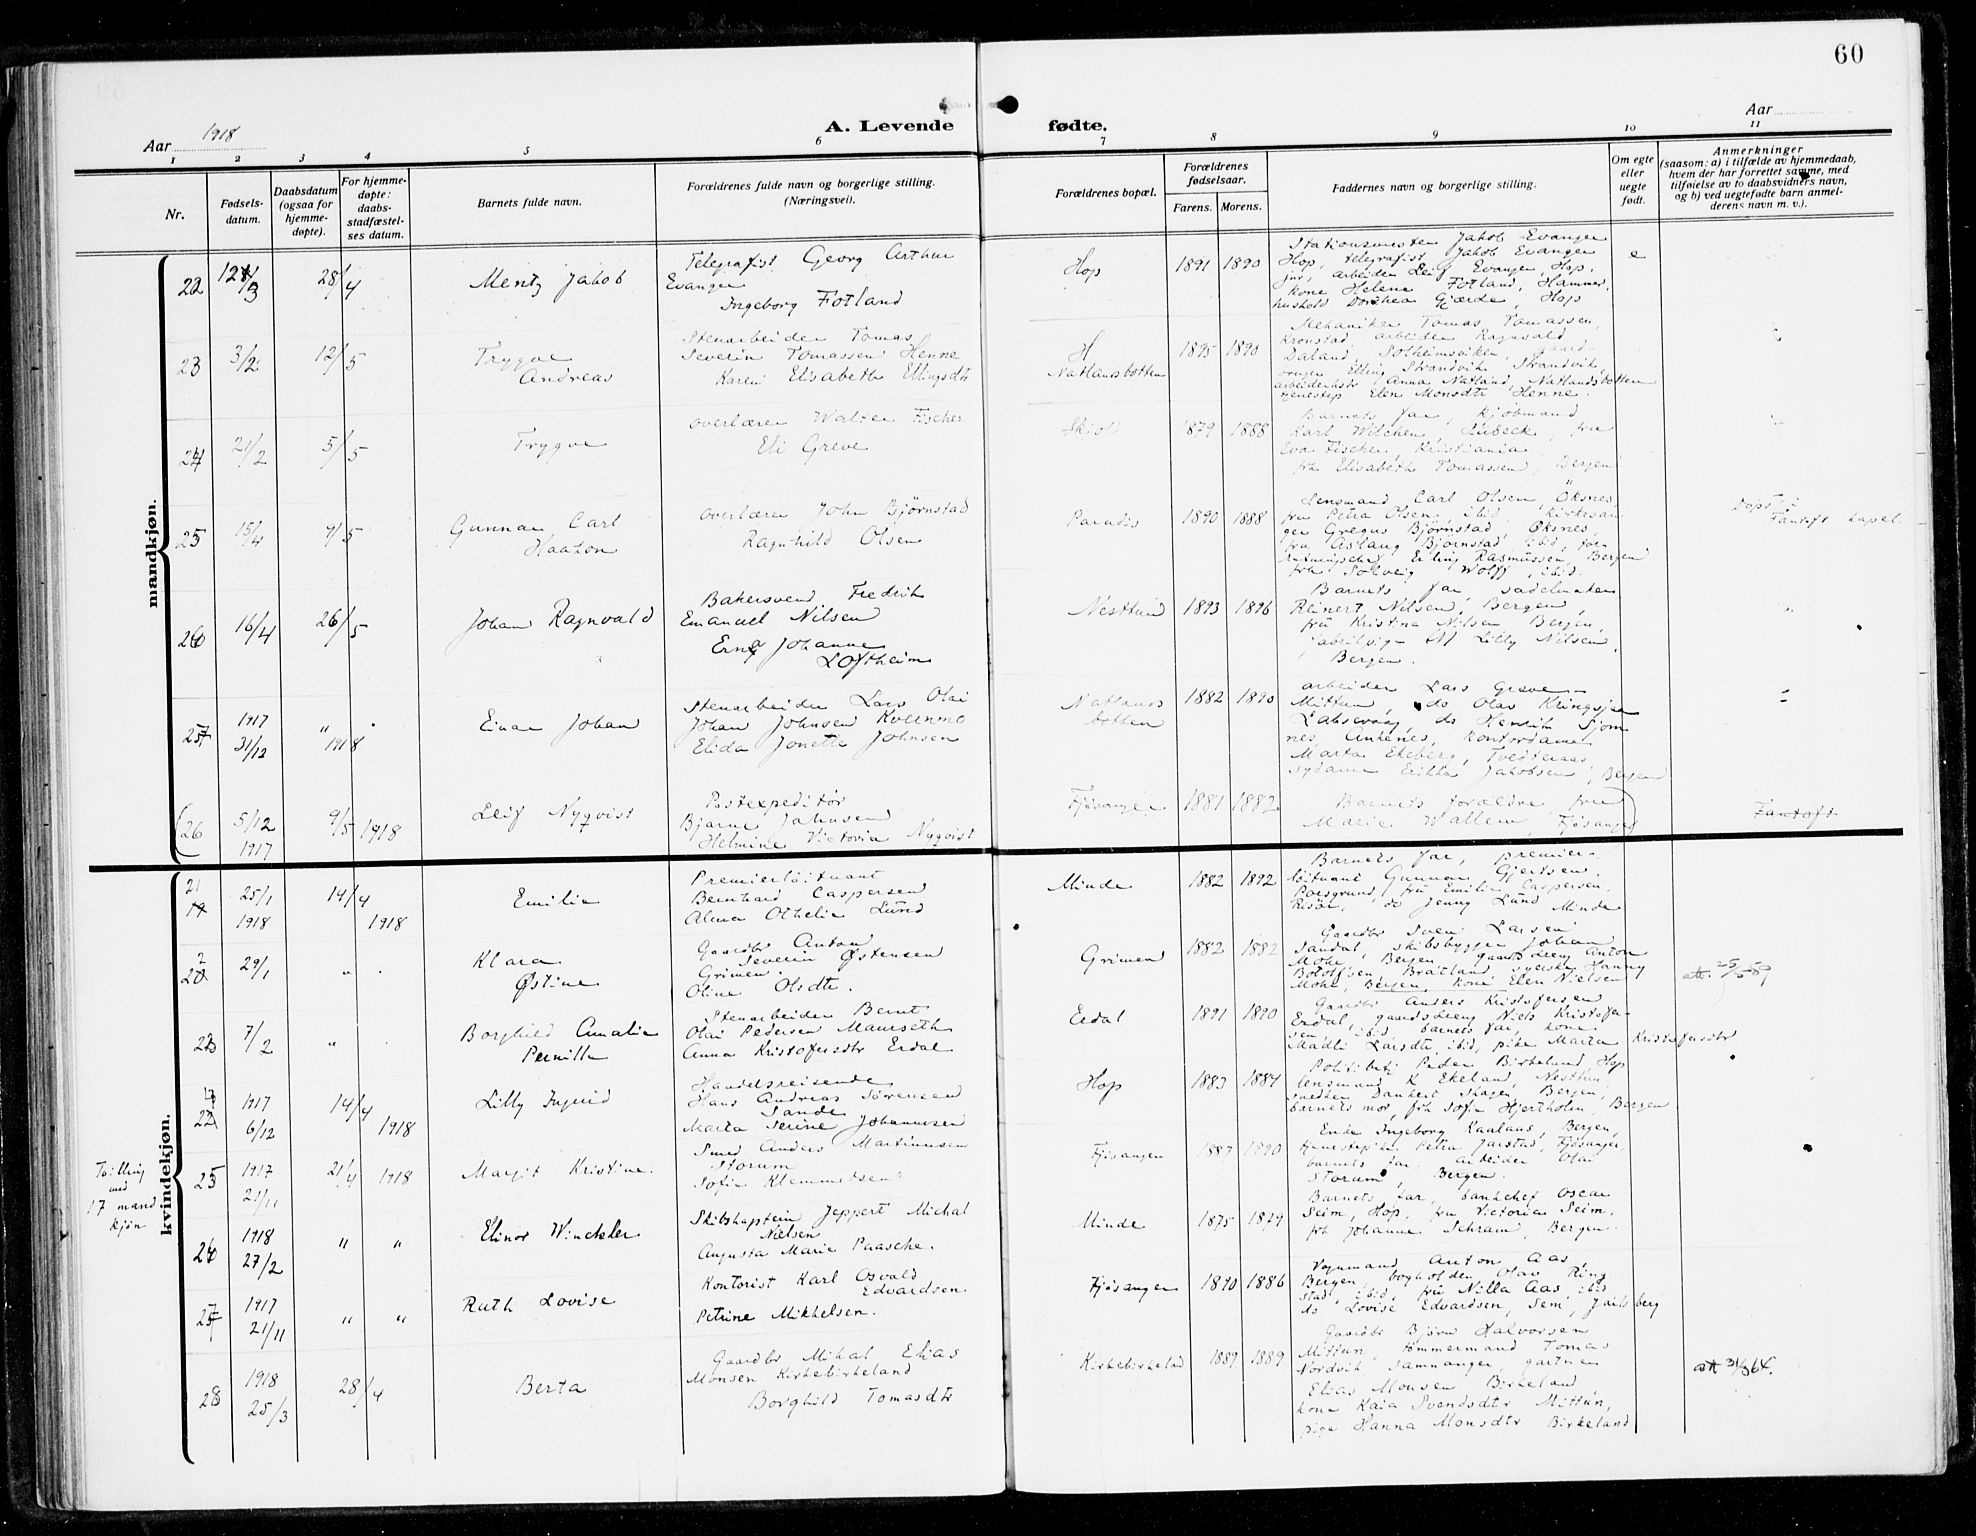 60
Aar 1918
A. Levende
fødte.
Aar
1 2 3 4 5 6 7 8 9 10 11
Nr.
Fødsels-
datum.
Daabsdatum
(ogsaa for
hjemme-
døpte).
For hjemme-
døpte:
daabs-
stadfæstel-
ses datum.
Barnets fulde navn.
Forældrenes fulde navn og borgerlige stilling.
(Næringsvei).
Forældrenes bopæl.
Forældrenes
fødselsaar.
Farens. Morens.
Faddernes navn og borgerlige stilling.
Om egte
eller
uegte
født.
Anmerkninger
(saasom: a) i tilfælde av hjemmedaab,
hvem der har forrettet samme, med
tilføielse av to daabsvidners navn,
og b) ved uegtefødte barn anmel-
derens navn m. v.).
mandkjøn.
22 28/4 Mentz Jakob
Telegrafist Georg Arthur
Evanger
Ingeborg Fotland
Hop 1891 1890
Stationsmester Jakob Evanger
Hop, telegrafist Jakob Evanger
jnr, arbeider Leif Evanger, Hop,
kone Helene Fotland, Hammer,
hushold Dorthea Gjærde, Hop
e
23 3/2 12/5 Trygve
Andreas
Stenarbeider Tomas
Severin Tomassen Henne
Karen Elisabeth Ellingsdtr
Natlandsbotten 1895 1890
Mekaniker Tomas Tomassen,
Kronstad, arbeider Ragnvald
Daland, Solheimsviken, gaard-
bruger Elling Strandvik, Strandvik,
arbeiderhstr Anna Natland, Natlandsbotten
tjenestep Elen Monsdtr Henne.
24 21/2 5/5 Trygve
Overlærer Walter Fischer
Eli Greve
Skjol 1879 1888
Barnets far, kjøbmand
Karl Witchen, Lübeck, fru
Eva Fischer, Kristiania,
frk Elisabeth Tomassen, Bergen
25 15/4 9/5 Gunnar Carl
Haakon
Overlærer John Bjørnstad
Ragnhild Olsen
Paradis 1890 1888
Lensmand Carl Olsen, Öksnes,
fru Petra Olsen ibid, kirkesan-
ger Gregus Bjørnstad, Öksnes,
fru Aslaug Bjørnstad ibid, for-
retningschef Erling Rasmussen, Bergen
frk Solveig Wolff, ibid.
Döpt i
Fantoft kapel.
26 16/4 26/5 Johan Ragnvald
Bakersvend Fredrik
Emanuel Nilsen
Erna Johanne
Loftheim
Nesttun 1893 1896
Barnets far, sadelmaker
Reinert Nilsen, Bergen,
fru Kristina Nilsen Bergen,
fabrikpige Lilly Nilsen
Bergen.
27 1917
31/12 " 1918 Einar Johan
Stenarbeider Lars Olai
Johan Johnsen Kvernmo
Elida Jonette Johnsen
Natlands
botten 1882 1890
arbeider Lars Greve
Mittun, do Olav Kringsjaa
Laksevaag, do Henrik Bjørn
nes Ankenes, kontordame
Marta Ekeberg, Tvedteraas
sydame Erikka Jakobsen, Bergen
(26 5/12
1917 9/5 1918 Leif Nyqvist
Postexpeditör
Bjarne Jahnsen
Helmine Victoria Nyqvist
Fjösanger 1881 1882
Barnets forældre fru
Marie Wallem, Fjösanger)
Fantoft
kvindekjøn.
21 25/1
1918 14/4
1918 Emilie
Premierlöitnant
Bernhard Caspersen
Alma Othelie Lund
Minde 1882 1892
Barnets far, premier-
löitnant Gunnar Gjertsen,
Porsgrund, fru Emilie Caspersen,
Risör, do Jenny Lund Minde
22 29/1 " Klara
Østine
Gaardbr Anton
Severin Østensen
Grimen.
Oline Olsdtr.
Grimen 1882 1882
Gaardbr Sven Larsen
Sandal, skibsbygger Johan
Mohe, Bergen, gaardsdreng Anton
Botolfsen, Bratland, syerske Hanny
Mohe, Bergen, kone Elen Nielsen
att. 25/5-59
23 7/2 " Borghild Amalie
Pernille
Stenarbeider Bernt
Olai Pedersen Maurseth
Anna Kristofersdtr Erdal
Erdal 1891 1890
Gaardbr Anders Kristofersen
Erdal, gaardsdreng Niels Kristofer-
sen ibid, barnets far, kone
Madli Larsdtr ibid, pike Marta Kristofersdtr
24 1917
6/12 14/4
1918 Lilly Ingrid
Handelsreisende
Hans Andreas Sørensen
Sande
Marta Serine Johannesen
Hop 1883 1884
Politibetj Peder Birkeland Hop
lensmand K Ekeland, Nesttun,
snedker Dankert Skagen, Bergen,
barnets mor, frk Sofie Hjertholm, Bergen
Tvilling
med
17 mand
kjön
25 1917
21/11 21/4 1918 Margit Kristine.
Smed Anders Martinusen
Storum
Sofie Klemmetsen
Fjösanger 1887 1890
Enke Ingeborg Kaalaas, Bergen,
tjenestepike Petra Jarstad, Fjösanger,
barnets far, arbeider Olai
Storum, Bergen.
26 1918
27/2 " " Elinor Winckler
Skibskaptein Jeppert Michal
Nielsen
Augusta Marie Paasche.
Minde 1875 1879
Barnets far, bankchef Oscar
Seim, Hop, fru Victoria Seim,
frk Johanne Schram, Bergen.
27 1917
21/11 " " Ruth Lovise
Kontorist Karl Osvald
Edvardsen
Petrine Mikkelsen.
Fjösanger 1890 1886
Vognmand Anton Aas,
Bergen, bogholder Olav Ring
stad, ibid, fru Nilla Aas, ibid
do Lovise Edvardsen, Sem, Jarlsberg
28 1918
25/3 28/4 Berta
Gaardbr Mikal Elias
Monsen Kirkebirkeland
Borghild Tomasdtr
Kirkebirkeland 1889 1889
Gaardbr Björn Halvorsen
Mittun, tömmermand Tomas
Nordvik Samnanger, gartner
Elias Monsen Birkeland
kone Kaia Svendsdtr Mittun,
pige Hanna Monsdtr Birkeland
att 31/3 64.